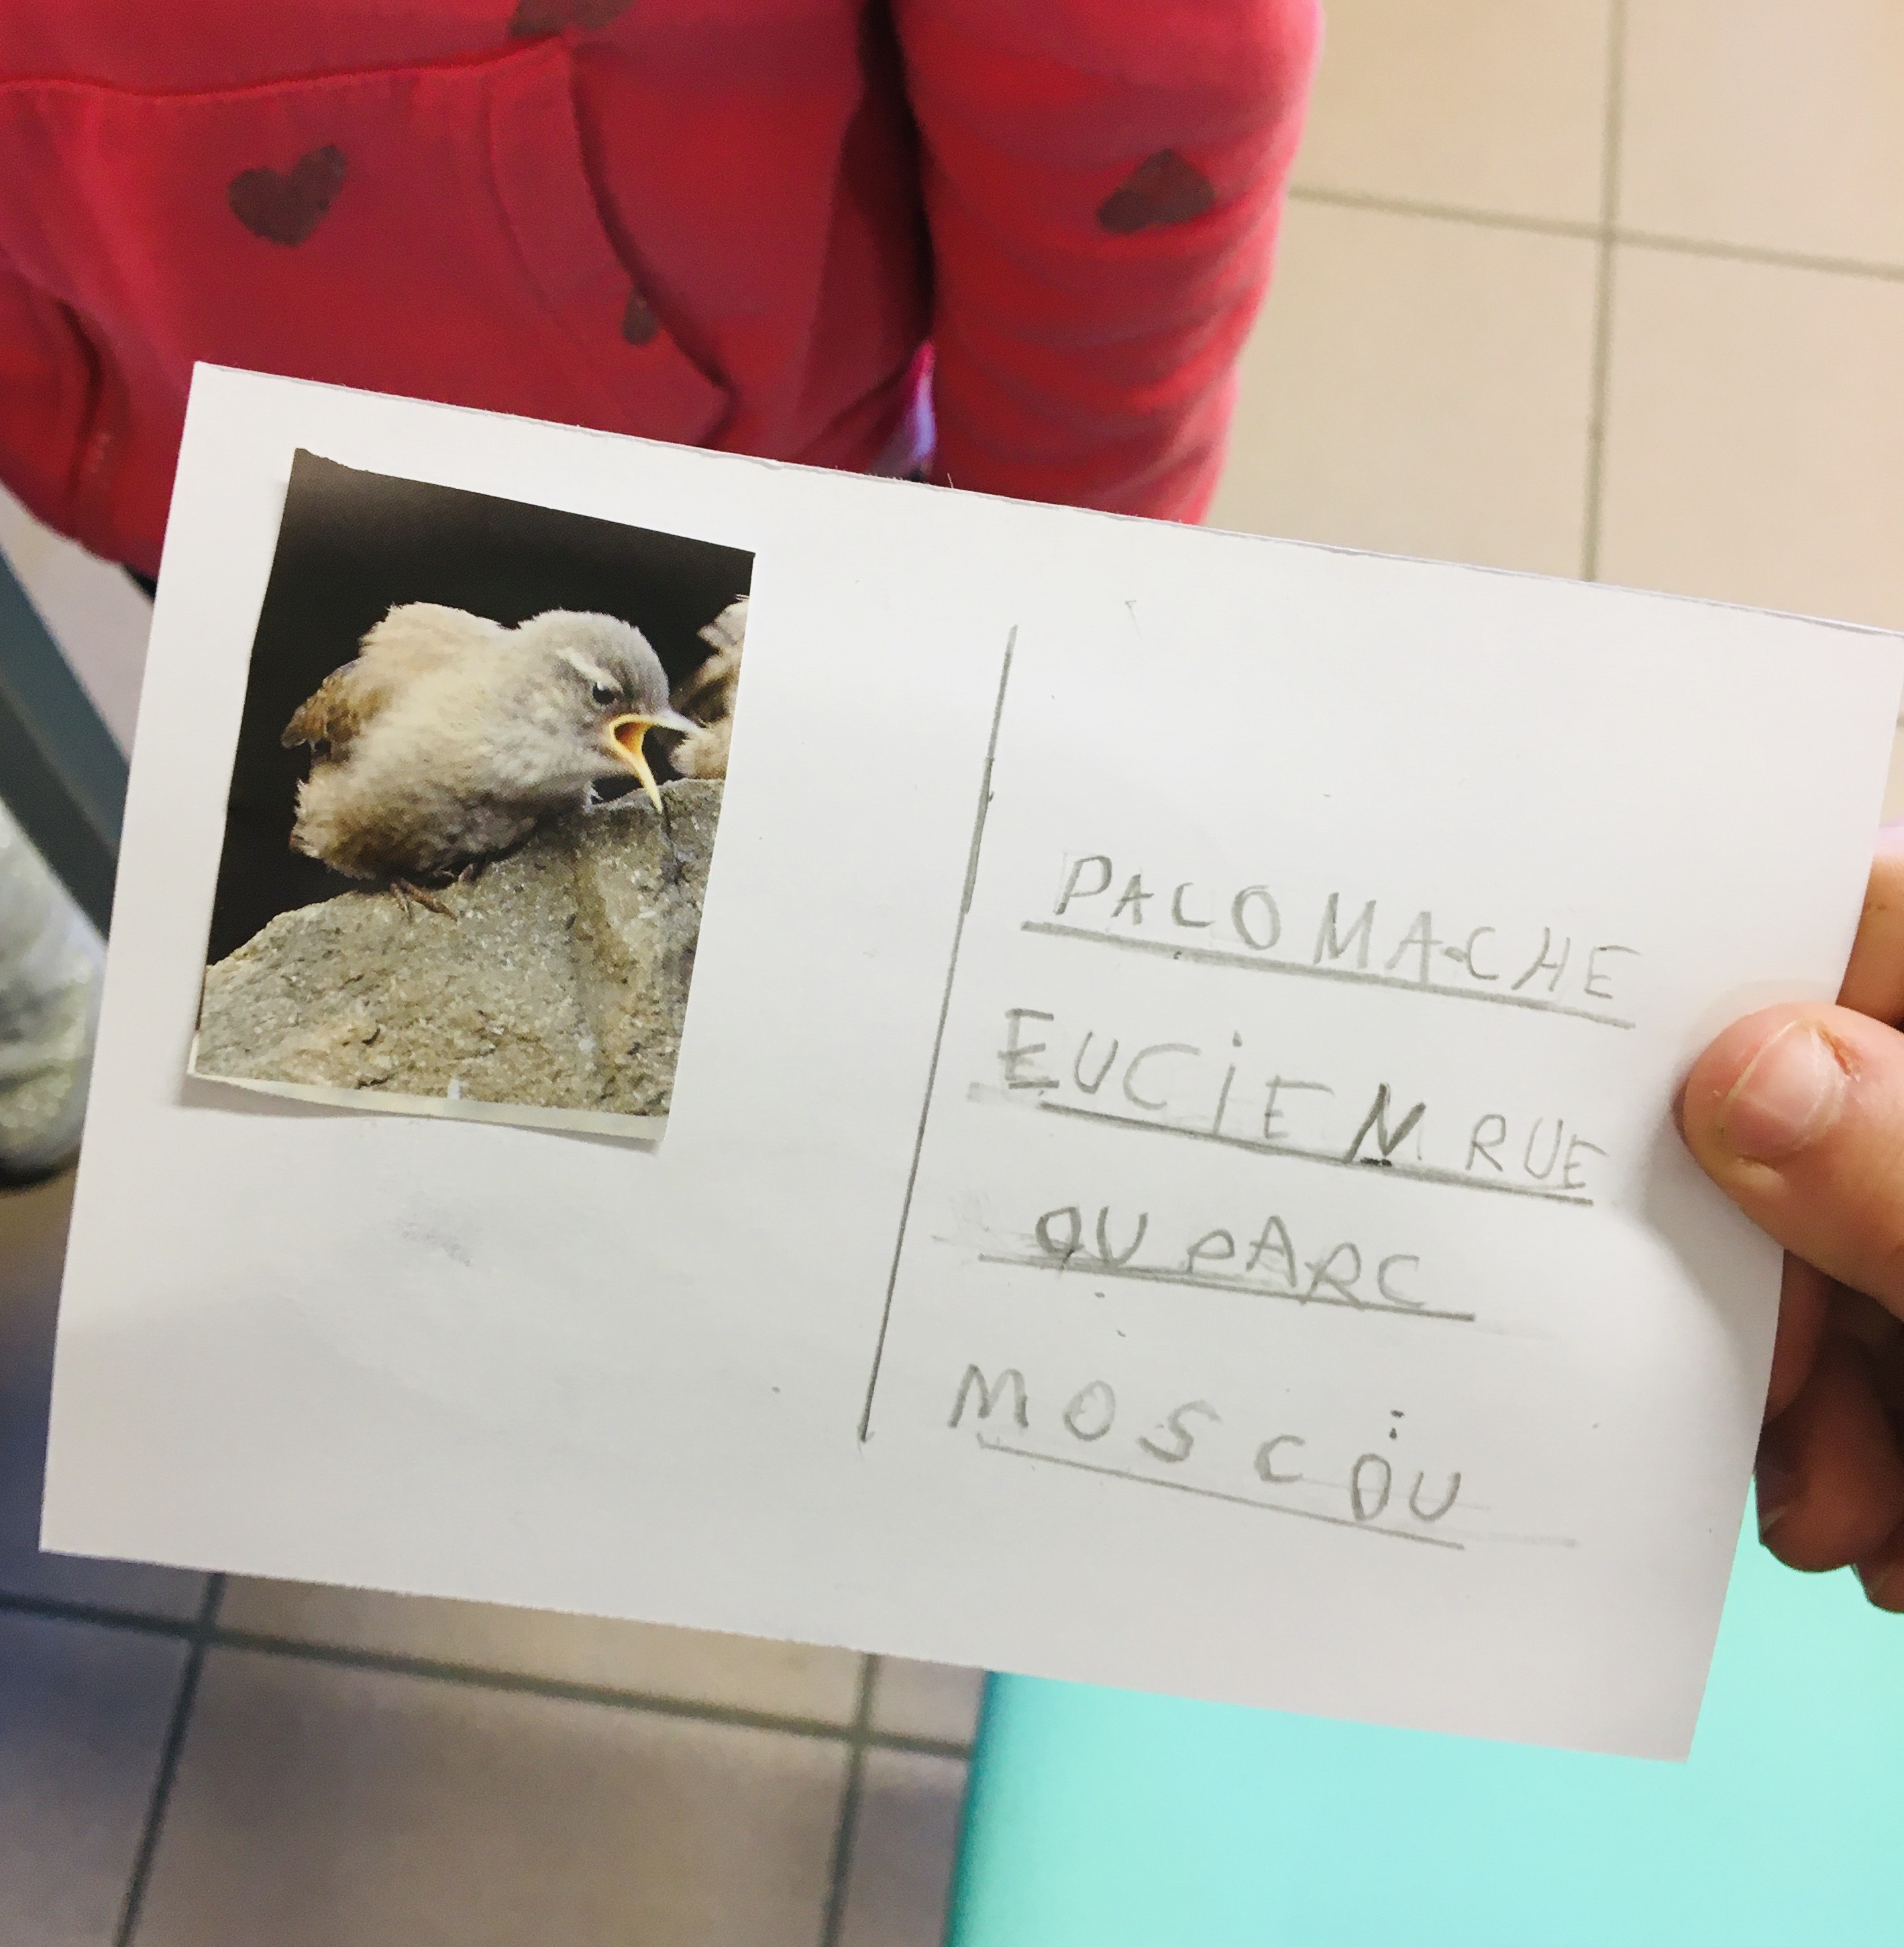 PALOMACHE
EUCIEN RUE
DU PARC
MOSCOU